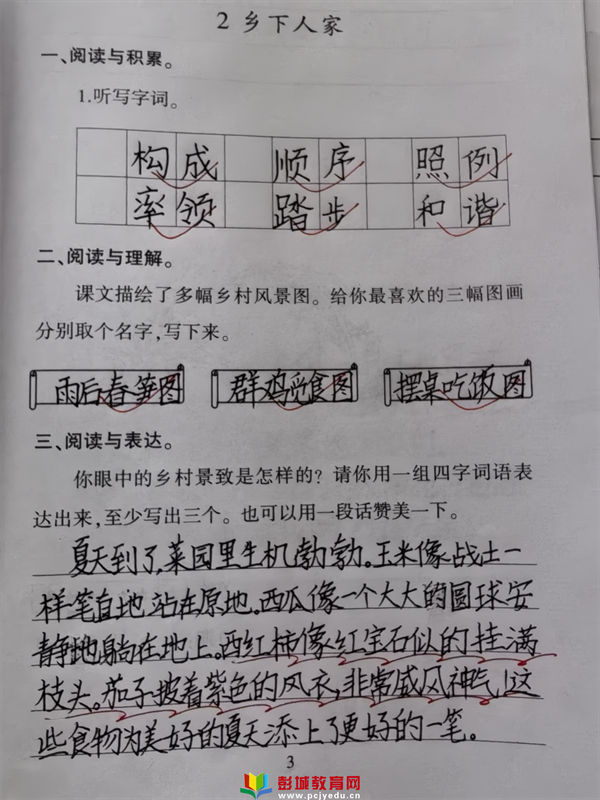 2 乡下人家
一、阅读与积累。
1.听写字词。
构成 顺序 照例
率领 踏步 和谐
二、阅读与理解。
课文描绘了多幅乡村风景图。给你最喜欢的三幅图画
分别取个名字,写下来。
雨后春笋图 群鸡觅食图 摆桌吃饭图
三、阅读与表达。
你眼中的乡村景致是怎样的？请你用一组四字词语表
达出来,至少写出三个。也可以用一段话赞美一下。
夏天到了,菜园里生机勃勃。玉米像战士一
样笔直地站在原地。西瓜像一个大大的圆球安
静地躺在地上。西红柿像红宝石似的挂满
枝头。茄子披着紫色的风衣,非常威风神气！这
些食物为美好的夏天添上了更好的一笔。
3
彭城教育网
www.pcjyedu.cn